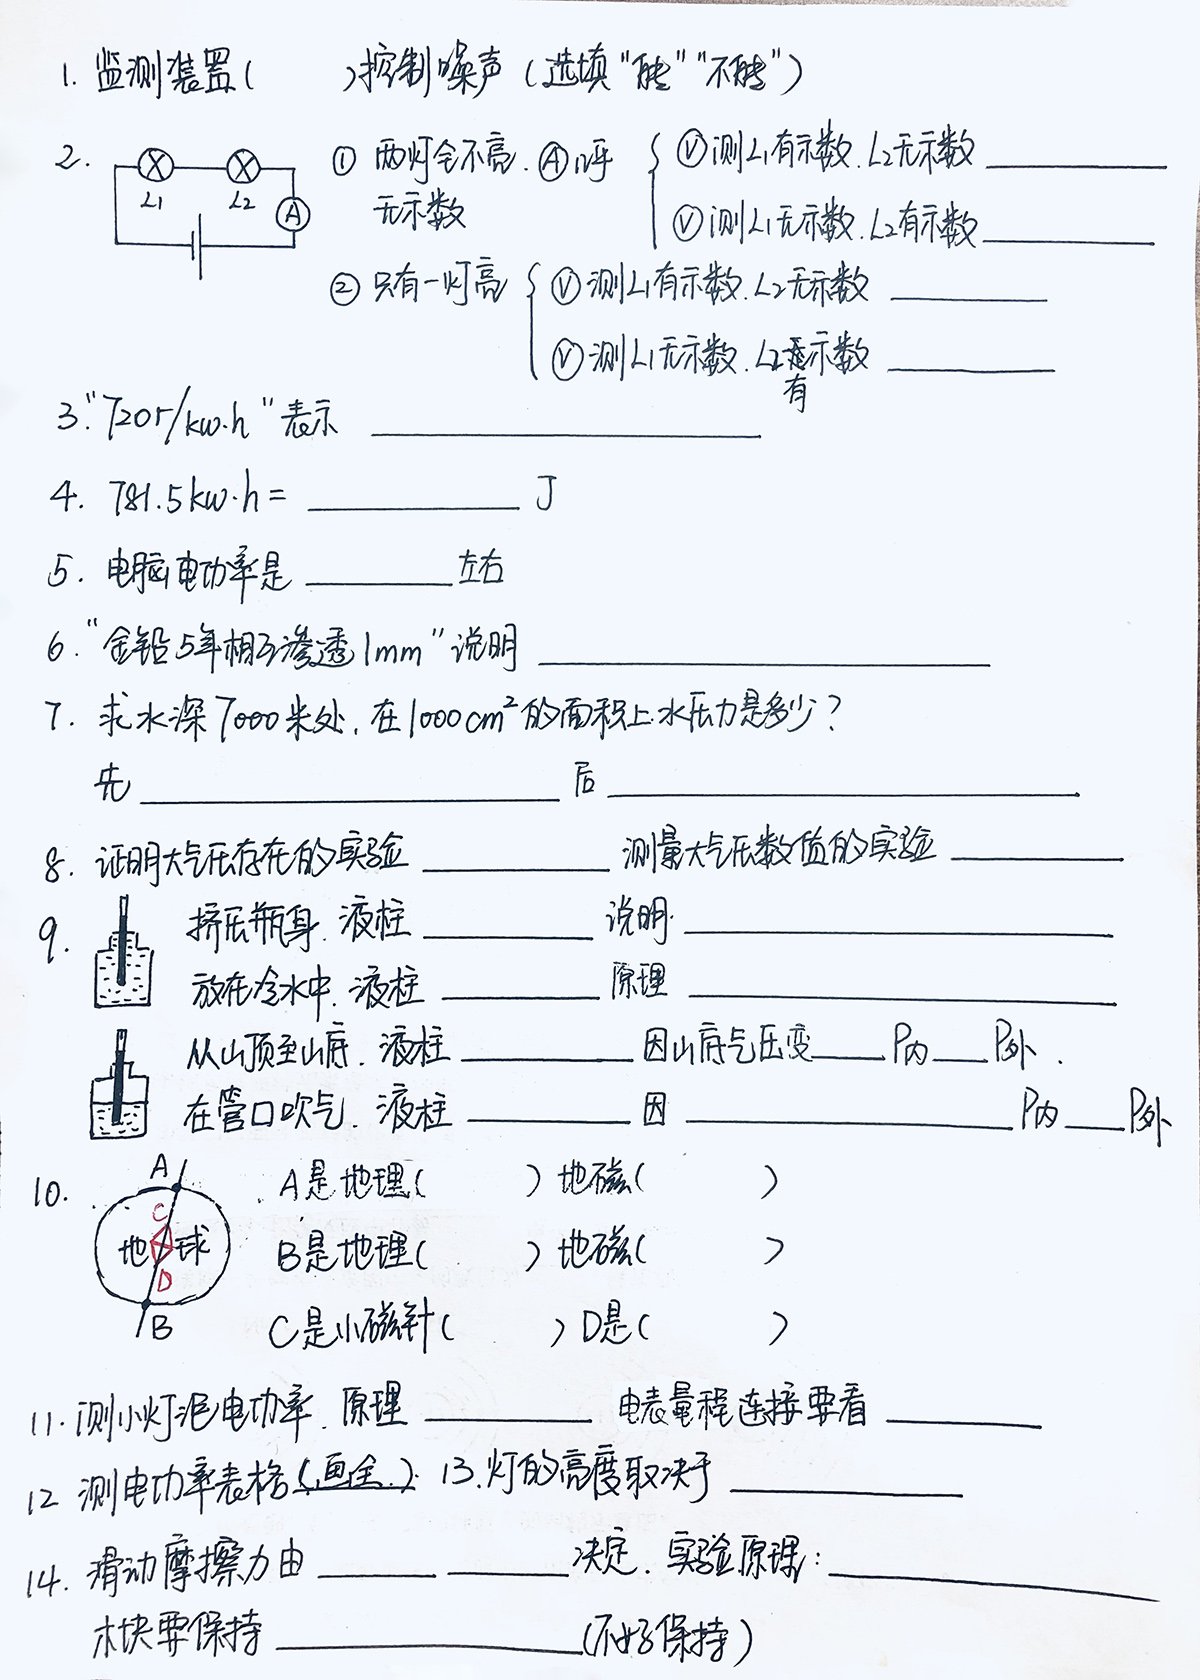 1. 监测装置(   )控制噪声(选填"能""不能")
2. L1 L2 A ① 两灯全不亮. Ⓐ几乎无示数 Ⓥ测L1有示数. L2无示数 ______
Ⓥ测L1无示数. L2有示数 ______
② 只有一灯亮 Ⓥ测L1有示数. L2无示数 ______
Ⓥ测L1无示数. L2有示数 ______
3. "720r/kw·h"表示 ______
4. 781.5kw·h= ______ J
5. 电脑电功率是 ______ 左右
6. "金铅5年相互渗透1mm"说明 ______
7. 求水深7000米处, 在1000cm²的面积上水压力是多少?
先 ______ 后 ______
8. 证明大气压存在的实验 ______ 测量大气压数值的实验 ______
9. 挤压瓶身. 液柱 ______ 说明. ______
放在冷水中. 液柱 ______ 原理 ______
从山顶至山底. 液柱 ______ 因山底气压变 ____ P内 ____ P外.
在管口吹气. 液柱 ______ 因 ______ P内 ____ P外
10. A C 地球 D B A是地理(   ) 地磁(   )
B是地理(   ) 地磁(   )
C是小磁针(   ) D是(   )
11. 测小灯泡电功率. 原理 ______ 电表量程连接要看 ______
12 测电功率表格(画全.). 13. 灯的亮度取决于 ______
14. 滑动摩擦力由 ______ ______ 决定. 实验原理: ______
木块要保持 ______ (不好保持)